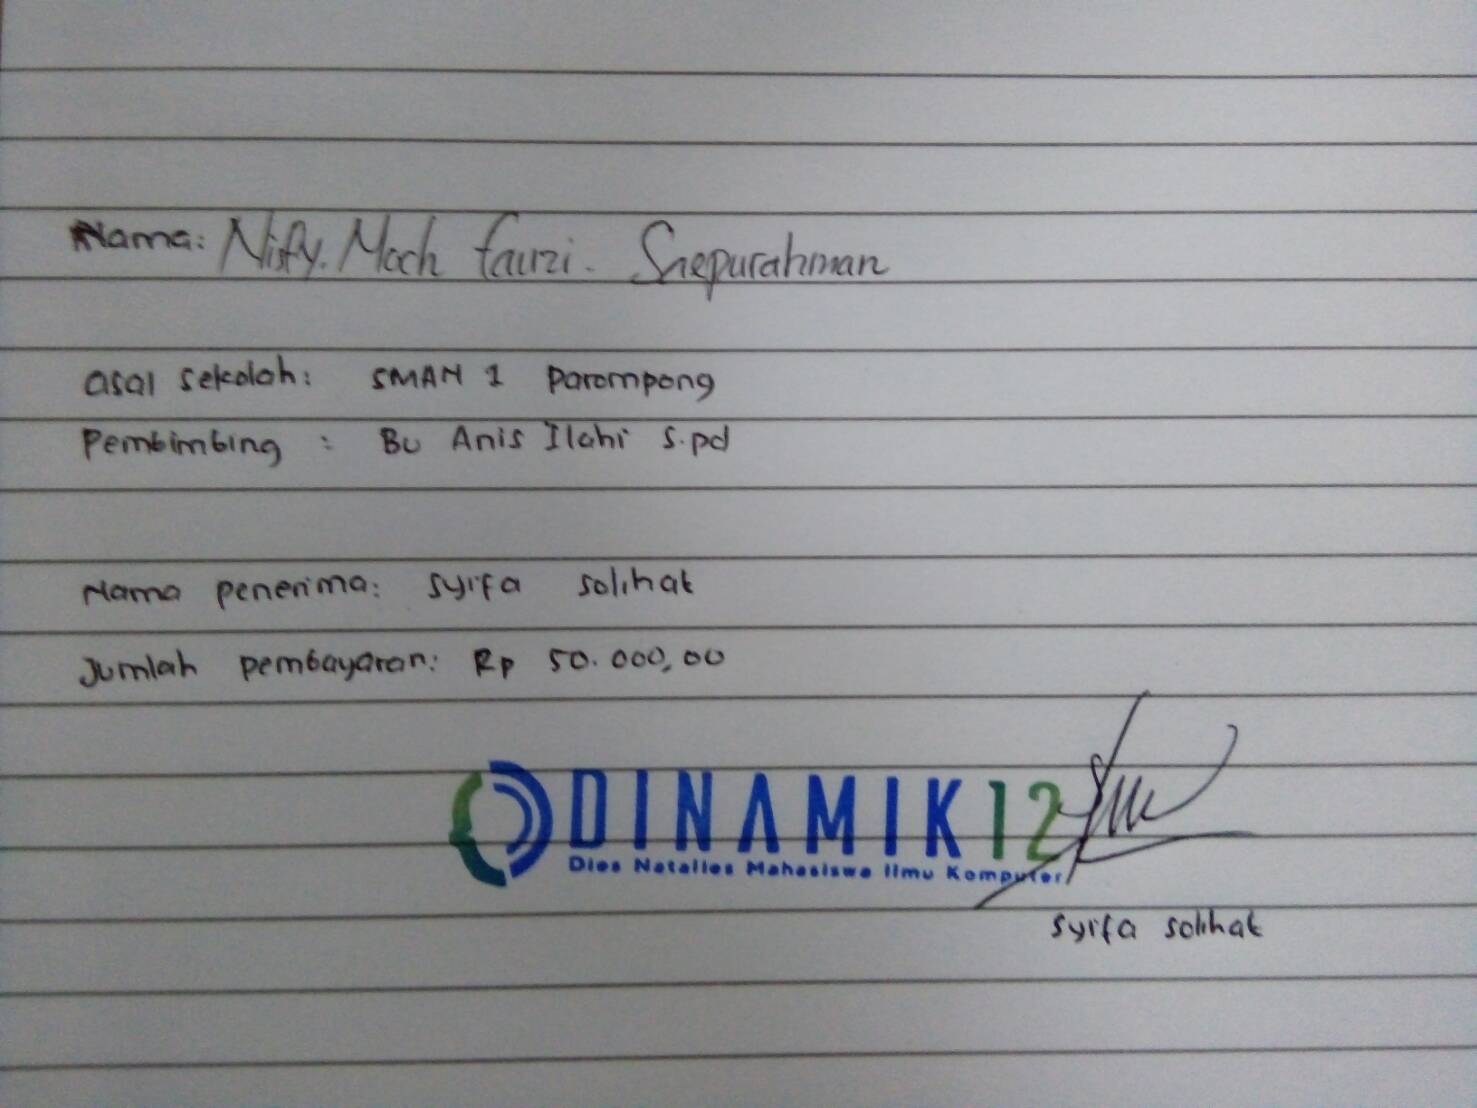 Nama: Nisfy. Moch fauzi. Saepurahman
asal sekolah: SMAN 1 Parompong
Pembimbing : Bu Anis Ilahi s.pd
Nama penerima: syifa solihat
Jumlah pembayaran: Rp 50.000,00
DINAMIK12
Dies Natalies Mahasiswa Ilmu Komputer
syifa solihat